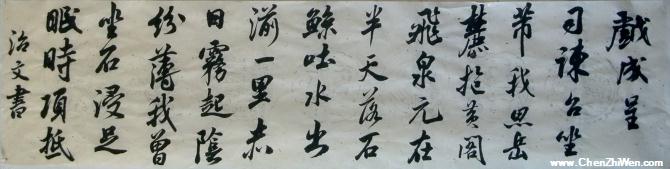 戲成呈
司諫台坐
芾我思岳
麓抱黃閣
飛泉元在
半天落石
鯨吐水出
湔一里赤
日霧起陰
紛薄我曾
坐石浸足
眠時項抵
治文書
www.ChenZhiWen.com